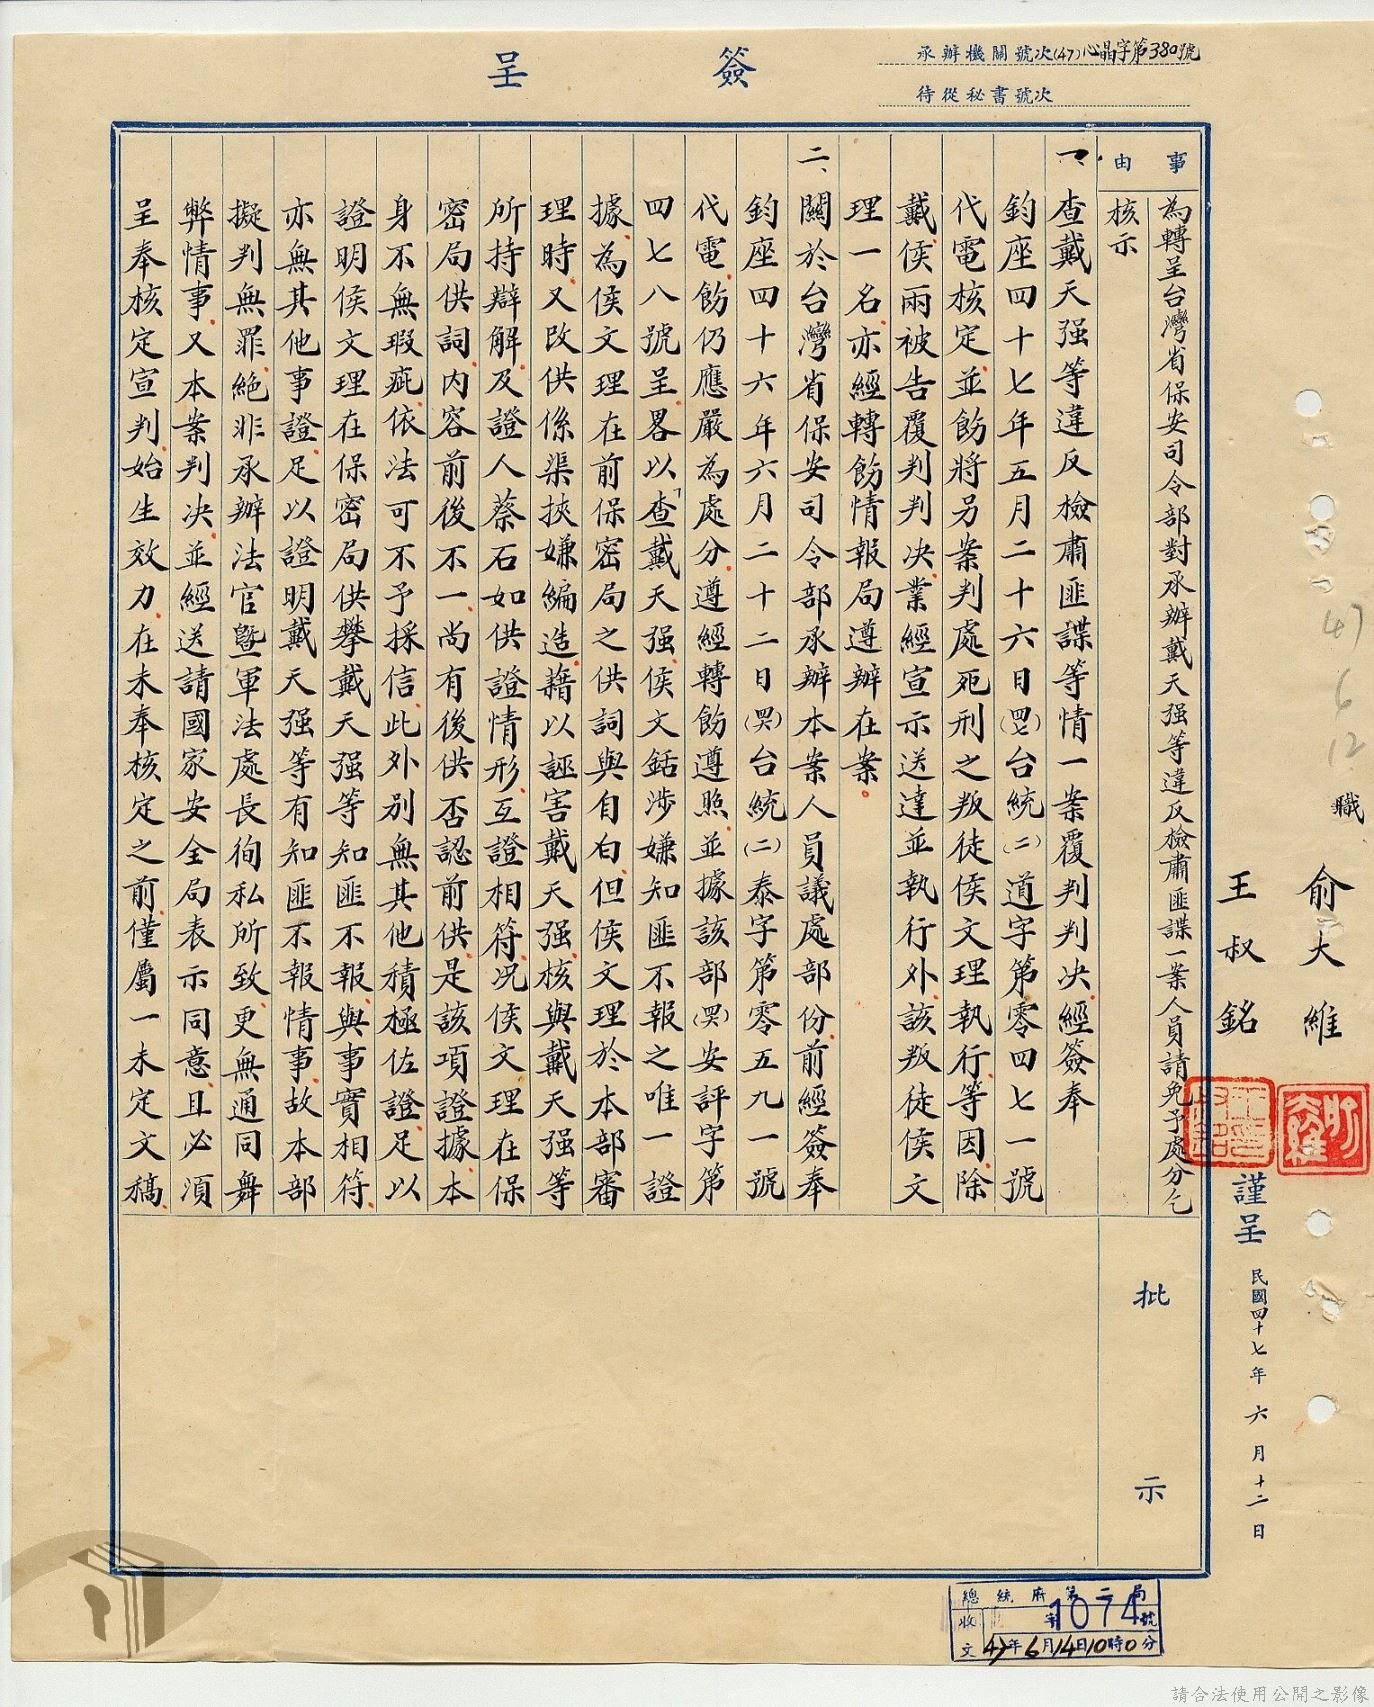 簽呈
承辦機關號次(47)心晶字第380號
待從秘書號次
事由
為轉呈台灣省保安司令部對承辦戴天强等違反檢肅匪諜一案人員請免予處分乞
核示
一、查戴天强等違反檢肅匪諜等情一案覆判判决經簽奉
鈞座四十七年五月二十六日(四七)台統(二)道字第零四七一號
代電核定並飭將另案判處死刑之叛徒侯文理執行等因除
戴侯兩被告覆判判决業經宣示送達並執行外該叛徒侯文
理一名亦經轉飭情報局遵辦在案。
二、關於台灣省保安司令部承辦本案人員議處部份前經簽奉
鈞座四十六年六月二十二日(四六)台統(二)泰字第零五九一號
代電飭仍應嚴為處分遵經轉飭遵照並據該部(四六)安評字第
四七八號呈畧以「查戴天强侯文銛涉嫌知匪不報之唯一證
據為侯文理在前保密局之供詞與自白但侯文理於本部審
理時又改供係渠挾嫌編造藉以誣害戴天强核與戴天强等
所持辯解及證人蔡石如供證情形互證相符况侯文理在保
密局供詞內容前後不一尚有後供否認前供是該項證據本
身不無瑕疵依法可不予採信此外別無其他積極佐證足以
證明侯文理在保密局供攀戴天强等知匪不報與事實相符
亦無其他事證足以證明戴天强等有知匪不報情事故本部
擬判無罪絶非承辦法官暨軍法處長徇私所致更無通同舞
弊情事又本案判决並經送請國家安全局表示同意且必須
呈奉核定宣判始生效力在未奉核定之前僅屬一未定文稿
批示
47 6 12
職
俞大維
王叔銘
謹呈
民國四十七年六月十二日
總統府第二局
收文 字1074號
47年6月14日10時0分
請合法使用公開之影像